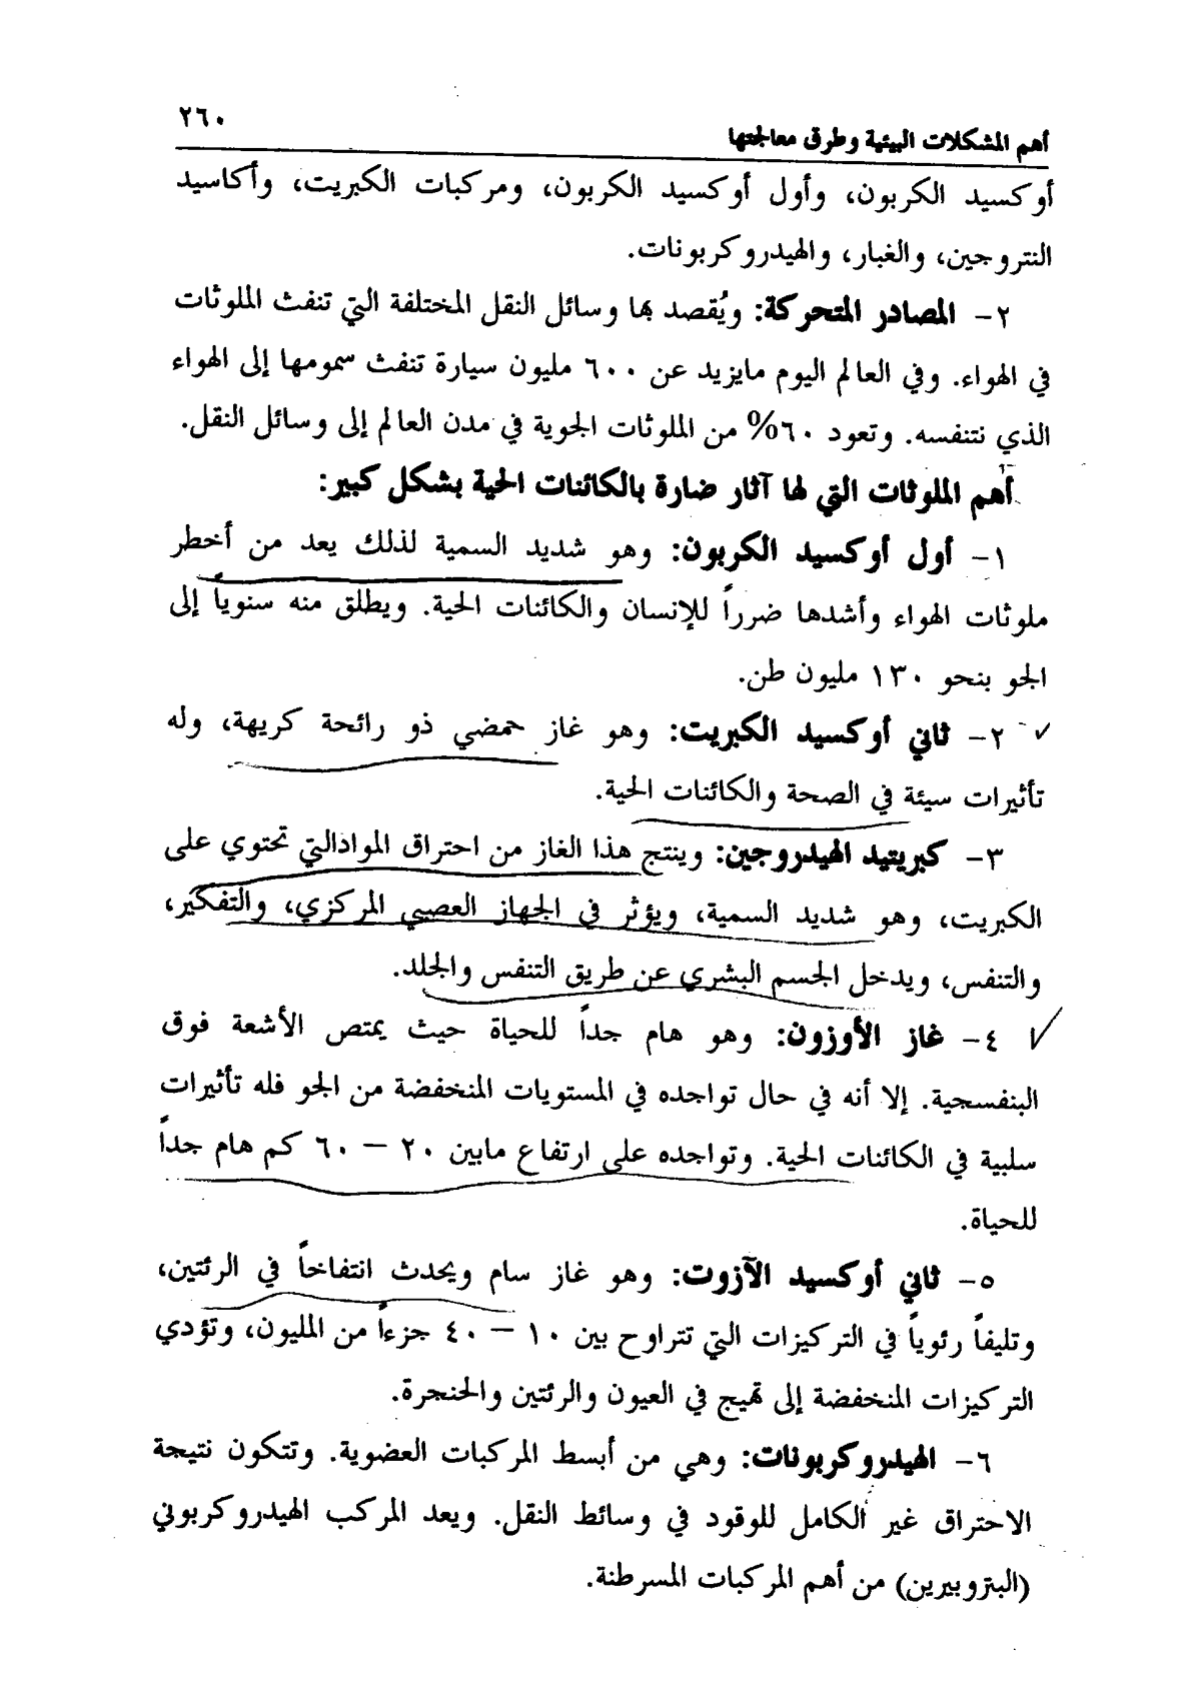 ٢٦٠
أهم المشكلات البيئية وطرق معالجتها
أوكسيد الكربون، وأول أوكسيد الكربون، ومركبات الكبريت، وأكاسيد
النتروجين، والغبار، والهيدروكربونات.
٢- المصادر المتحركة: ويُقصد بها وسائل النقل المختلفة التي تنفث الملوثات
في الهواء. وفي العالم اليوم مايزيد عن ٦٠٠ مليون سيارة تنفث سمومها إلى الهواء
الذي نتنفسه. وتعود ٦٠% من الملوثات الجوية في مدن العالم إلى وسائل النقل.
أهم الملوثات التي لها آثار ضارة بالكائنات الحية بشكل كبير:
١- أول أوكسيد الكربون: وهو شديد السمية لذلك يعد من أخطر
ملوثات الهواء وأشدها ضرراً للإنسان والكائنات الحية. ويطلق منه سنوياً إلى
الجو بنحو ١٣٠ مليون طن.
٢- ثاني أوكسيد الكبريت: وهو غاز حمضي ذو رائحة كريهة، وله
تأثيرات سيئة في الصحة والكائنات الحية.
٣- كبريتيد الهيدروجين: وينتج هذا الغاز من احتراق الموادالتي تحتوي على
الكبريت، وهو شديد السمية، ويؤثر في الجهاز العصبي المركزي، والتفكير،
والتنفس، ويدخل الجسم البشري عن طريق التنفس والجلد.
٤- غاز الأوزون: وهو هام جداً للحياة حيث يمتص الأشعة فوق
البنفسجية. إلا أنه في حال تواجده في المستويات المنخفضة من الجو فله تأثيرات
سلبية في الكائنات الحية. وتواجده على ارتفاع مابين ٢٠ – ٦٠ كم هام جداً
للحياة.
٥- ثاني أوكسيد الآزوت: وهو غاز سام ويحدث انتفاخاً في الرئتين،
وتليفاً رئوياً في التركيزات التي تتراوح بين ١٠ – ٤٠ جزءاً من المليون، وتؤدي
التركيزات المنخفضة إلى تهيج في العيون والرئتين والحنجرة.
٦- الهيدروكربونات: وهي من أبسط المركبات العضوية. وتتكون نتيجة
الاحتراق غير الكامل للوقود في وسائط النقل. ويعد المركب الهيدروكربوني
(البتروبيرين) من أهم المركبات المسرطنة.